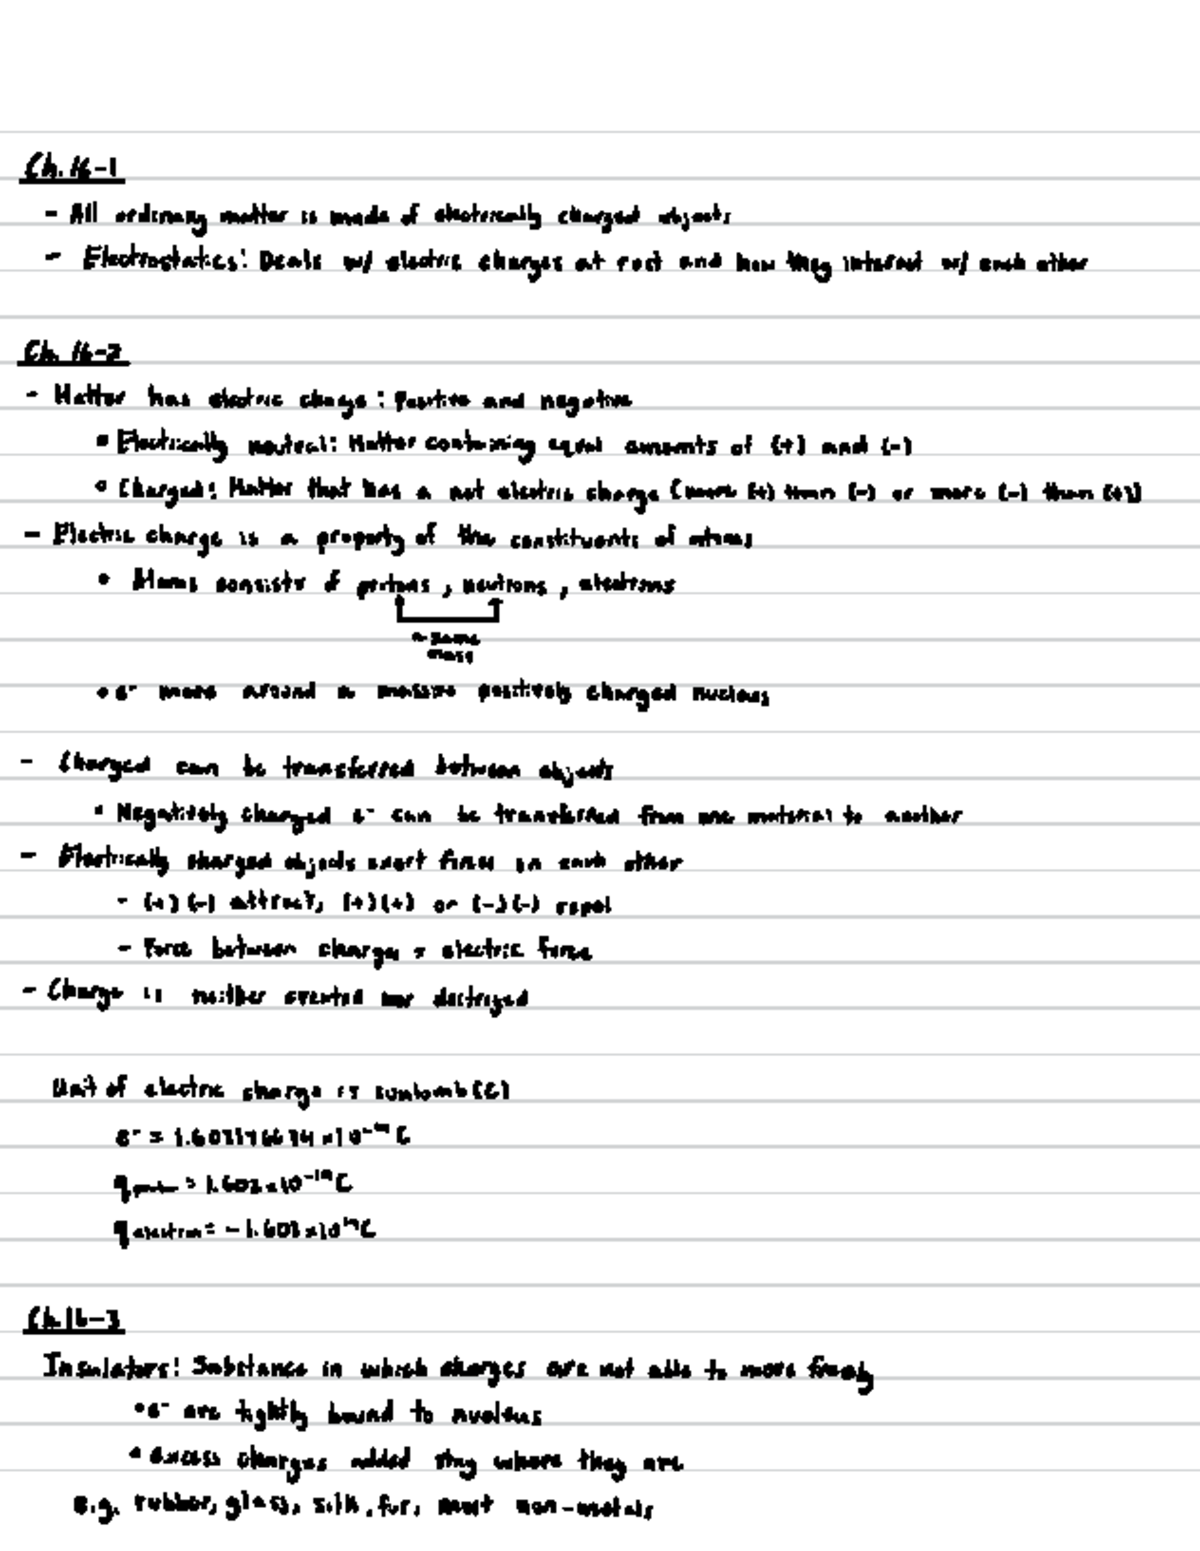 Ch. 16-1
- All ordinary matter is made of electrically charged objects
- Electrostatics: Deals w/ electric charges at rest and how they interact w/ each other
Ch. 16-2
- Matter has electric charge: Positive and negative
• Electrically neutral: Matter containing equal amounts of (+) and (-)
• Charged: Matter that has a net electric charge (more (+) than (-) or more (-) than (+))
- Electric charge is a property of the constituents of atoms
• Atoms consists of protons, neutrons, electrons
~ same
mass
• e⁻ move around a massive positively charged nucleus
- Charged can be transferred between objects
• Negatively charged e⁻ can be transferred from one material to another
- Electrically charged objects exert forces on each other
- (+)(-) attract, (+)(+) or (-)(-) repel
- Force between charges = electric force
- Charge is neither created nor destroyed
Unit of electric charge is coulomb (C)
e⁻ = C
q proton = 1.602 x 10⁻¹⁹ C
q electron = -1.602 x 10 C
Ch.16-3
Insulators: Substance in which charges are not able to move freely
• e⁻ are tightly bound to nucleus
• excess charges added stay where they are
e.g. rubber, glass, silk, fur, most non-metals